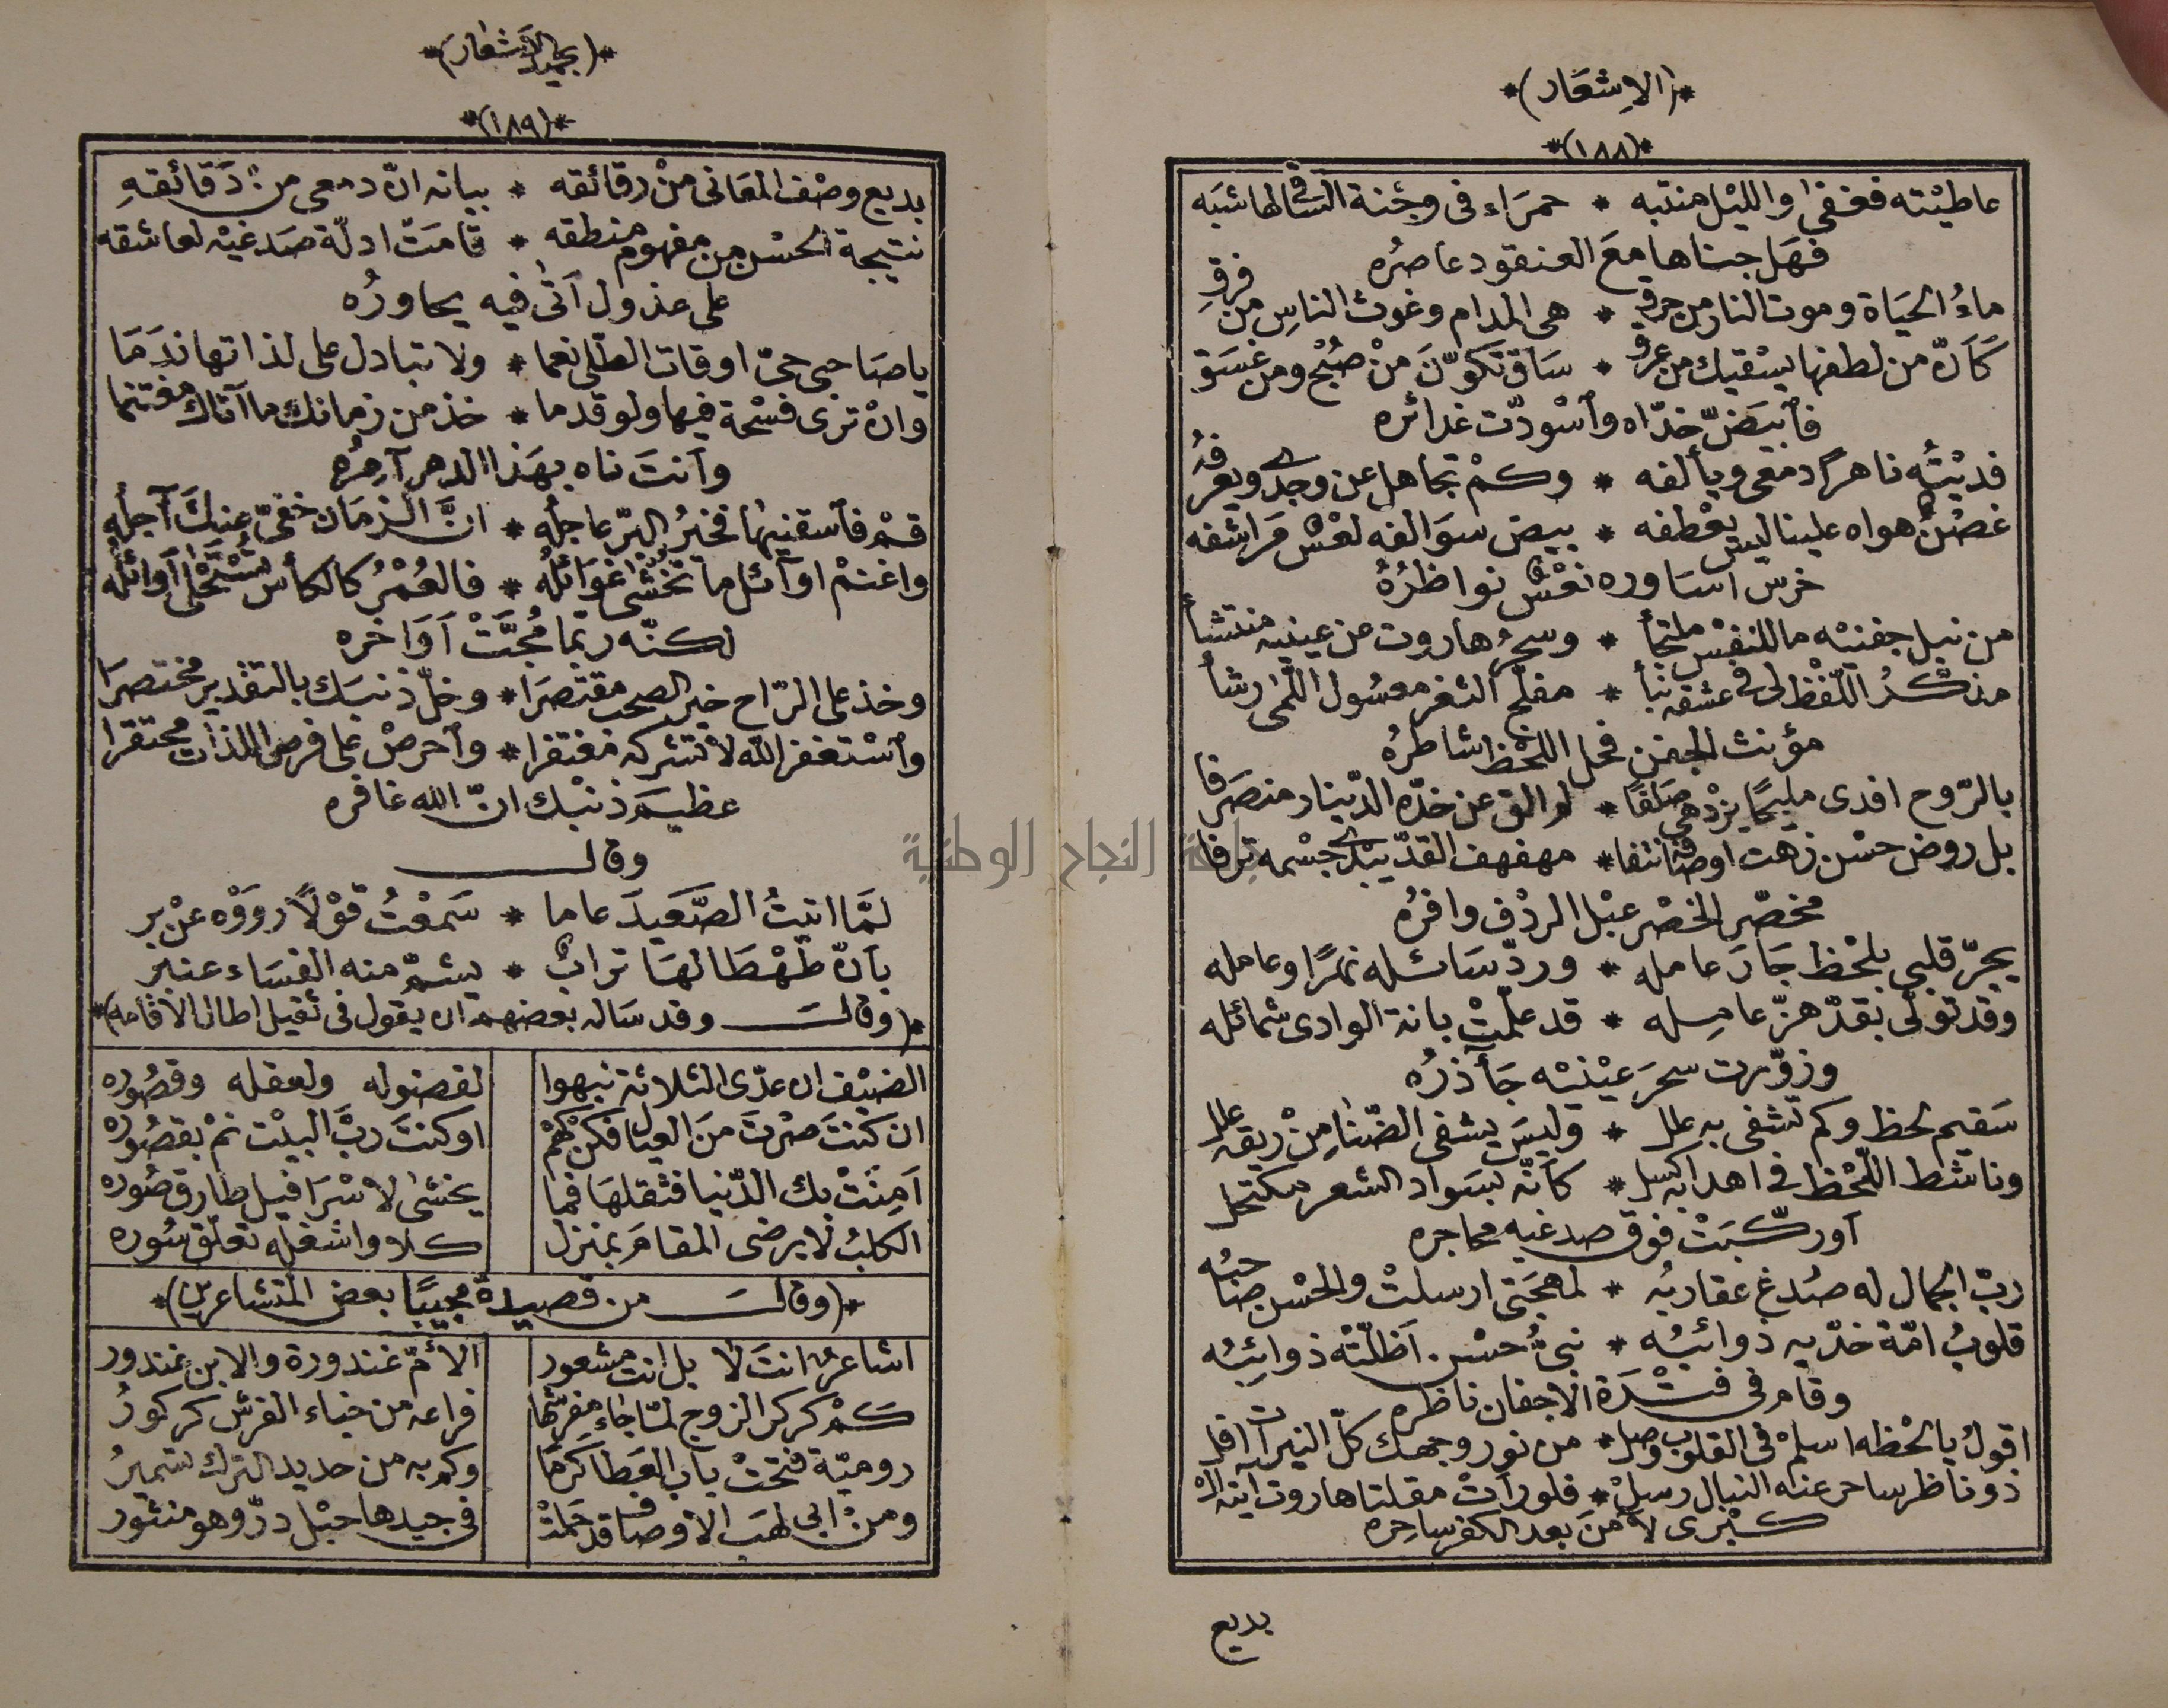 *(الاشعار)*
*(١٨٨)*
عاطيته فغفى والليل منتبه * حمراء فى وجنة الساقى لها شبه
فهل جناها مع العنقود عاصره
ماء الحياة وموت النار من حرق * هى المدام وغوث الناس من فرق
كأن من لطفها يسقيك من عرق * ساق تكون من صبح ومن غسق
فابيض خداه واسودت غدائره
فديته ناهرا دمعى ويألفه * وكم تجاهل عن وجدى ويعرفه
غصن هواه علينا ليس يعطفه * بيض سوالفه لعس مراشفه
خرس اساوره نعس نواظره
من نبل جفنيه ما للنفس ملتجأ * وسحر هاروت عن عينيه منتشأ
مذكر اللفظ لى فى عشقه نبأ * مفلج الثغر معسول اللمى رشأ
مؤنث الجفن فحل اللحظ شاطره
بالروح افدى مليحا يزدهى صلفا * لو القى عن خده الدينار منصرفا
بل روض حسن زهت اوصافه انفا * مهفهف القد يبدى جسمه ترفا
مخصر الخصر عبل الردف وافره
يجر قلبى بلحظ جار عامله * ورد سائله نهرا وعامله
وقد تولى بقد هز عامله * قد علمت بانة الوادى شمائله
وزورت سحر عينيه جآذره
سقيم لحظ وكم تشفى به علل * وليس يشفى الضنا من ريقه علل
وناشط اللحظ فى اهدابه كسل * كأنه بسواد الشعر مكتحل
او ركبت فوق صدغيه محاجره
رب الجمال له صدغ عقاربه * لمهجتى ارسلت والحسن صاحبه
قلوب امة خديه ذوائبه * نبى حسن اظلته ذوائبه
وقام فى فترة الاجفان ناظره
اقول يا لحظه اسلم فى القلوب وصل * من نور وجهك كل النيرات افل
ذو ناظر ساحر عنه النبال رسل * فلو رأت مقلتا هاروت آيته ال
كبرى لآمن بعد الكفر ساحره
بديع
*(بحميد الاشعار)*
*(١٨٩)*
بديع وصف المعانى من رقائقه * بيانه ان دمعى من دقائقه
نتيجة الحسن من مفهوم منطقه * قامت ادلة صدغيه لعاشقه
على عذول اتى فيه يحاوره
يا صاحبى حى اوقات الطلى نعما * ولا تبادل على لذاتها ندما
وان ترى فسحة فيها ولو قدما * خذ من زمانك ما آتاك مغتنما
وانت ناه بهذا الدهر آمره
قم فاسقنيها فخير البر عاجله * ان الزمان خفى عنك آجله
واغنم اوآئل ما تخشى غوائله * فالعمر كالكأس تستحلى اوائله
لكنه ربما مجت اواخره
وخذ على الراح خير الصحب مقتصرا * وخل ذنبك بالتقدير مختصرا
واستغفر الله لا تشركه مغتفرا * واحرص على فرص اللذات محتقرا
عظيم ذنبك ان الله غافره
وقال
لما اتيت الصعيد عاما * سمعت قولا رووه عن بر
بأن طهطا لها تراب * يشم منه الفساء عنبر
*(وقال وقد ساله بعضهم ان يقول فى ثقيل اطال الاقامه)*
الضيف ان عدى الثلاثة نبهوا لفضوله ولعقله وقصوره
ان كنت صرت من العيال فكن كهم او كنت رب البيت نم بقصوره
آمنت بك الدنيا فثقلها فما يخشى لاسرافيل طارق صوره
الكلب لا يرضى المقام بمنزل كلا واشغله تعلق سوره
*(وقال من قصيدة مجيبا بعض المتشاعرين)*
اشاعر انت لا بل انت مشعور الأم غندورة والابن غندور
كم كركر الزوج لما جاء مفرشها فراعه من خباء الفرش كركور
رومية فتحت باب العطا كرما وكم به من حديد الترك تسمير
ومن ابى لهب الاوصاف قد حملت فى جيدها حبل در وهو منثور
جامعة النجاح الوطنية